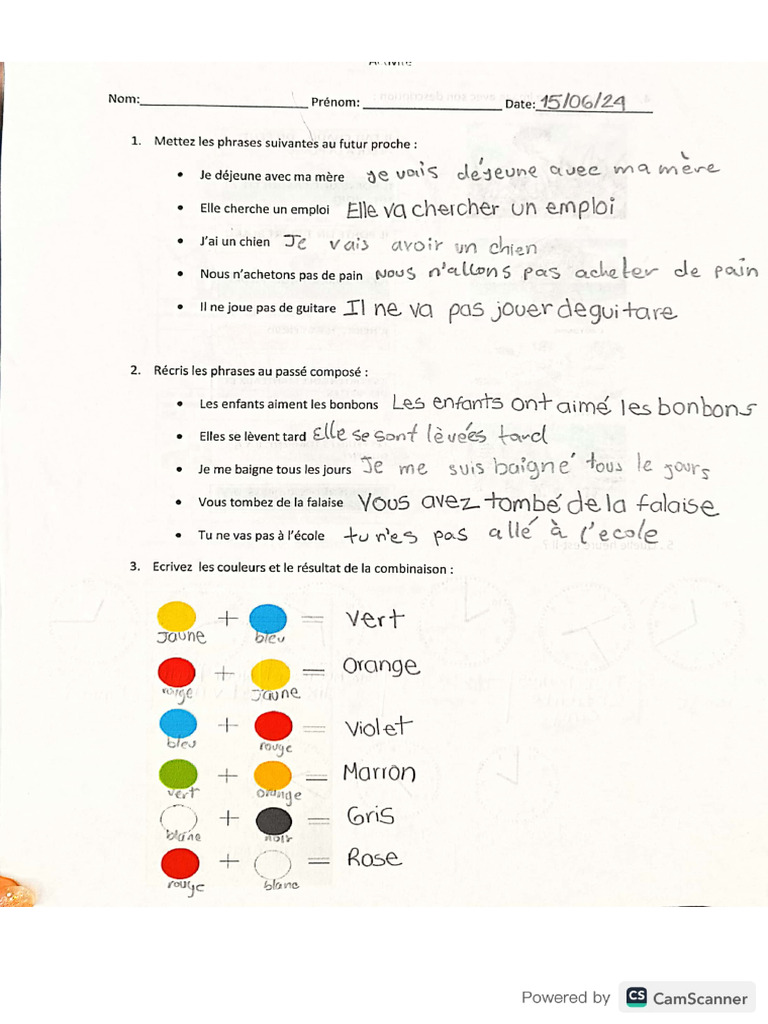 Nom: Prénom: Date: 15/06/24
1. Mettez les phrases suivantes au futur proche :
• Je déjeune avec ma mère je vais déjeune avec ma mère
• Elle cherche un emploi Elle va chercher un emploi
• J'ai un chien Je vais avoir un chien
• Nous n'achetons pas de pain Nous n'allons pas acheter de pain
• Il ne joue pas de guitare Il ne va pas jouer de guitare
2. Récris les phrases au passé composé :
• Les enfants aiment les bonbons Les enfants ont aimé les bonbons
• Elles se lèvent tard Elle se sont lèvées tard
• Je me baigne tous les jours Je me suis baigné tous le jours
• Vous tombez de la falaise Vous avez tombé de la falaise
• Tu ne vas pas à l'école tu n'es pas allé à l'ecole
3. Ecrivez les couleurs et le résultat de la combinaison :
+ = Vert
Jaune bleu
+ = Orange
rouge Jaune
+ = Violet
bleu rouge
+ = Marron
vert orange
+ = Gris
blanc noir
+ = Rose
rouge blanc
Powered by CS CamScanner